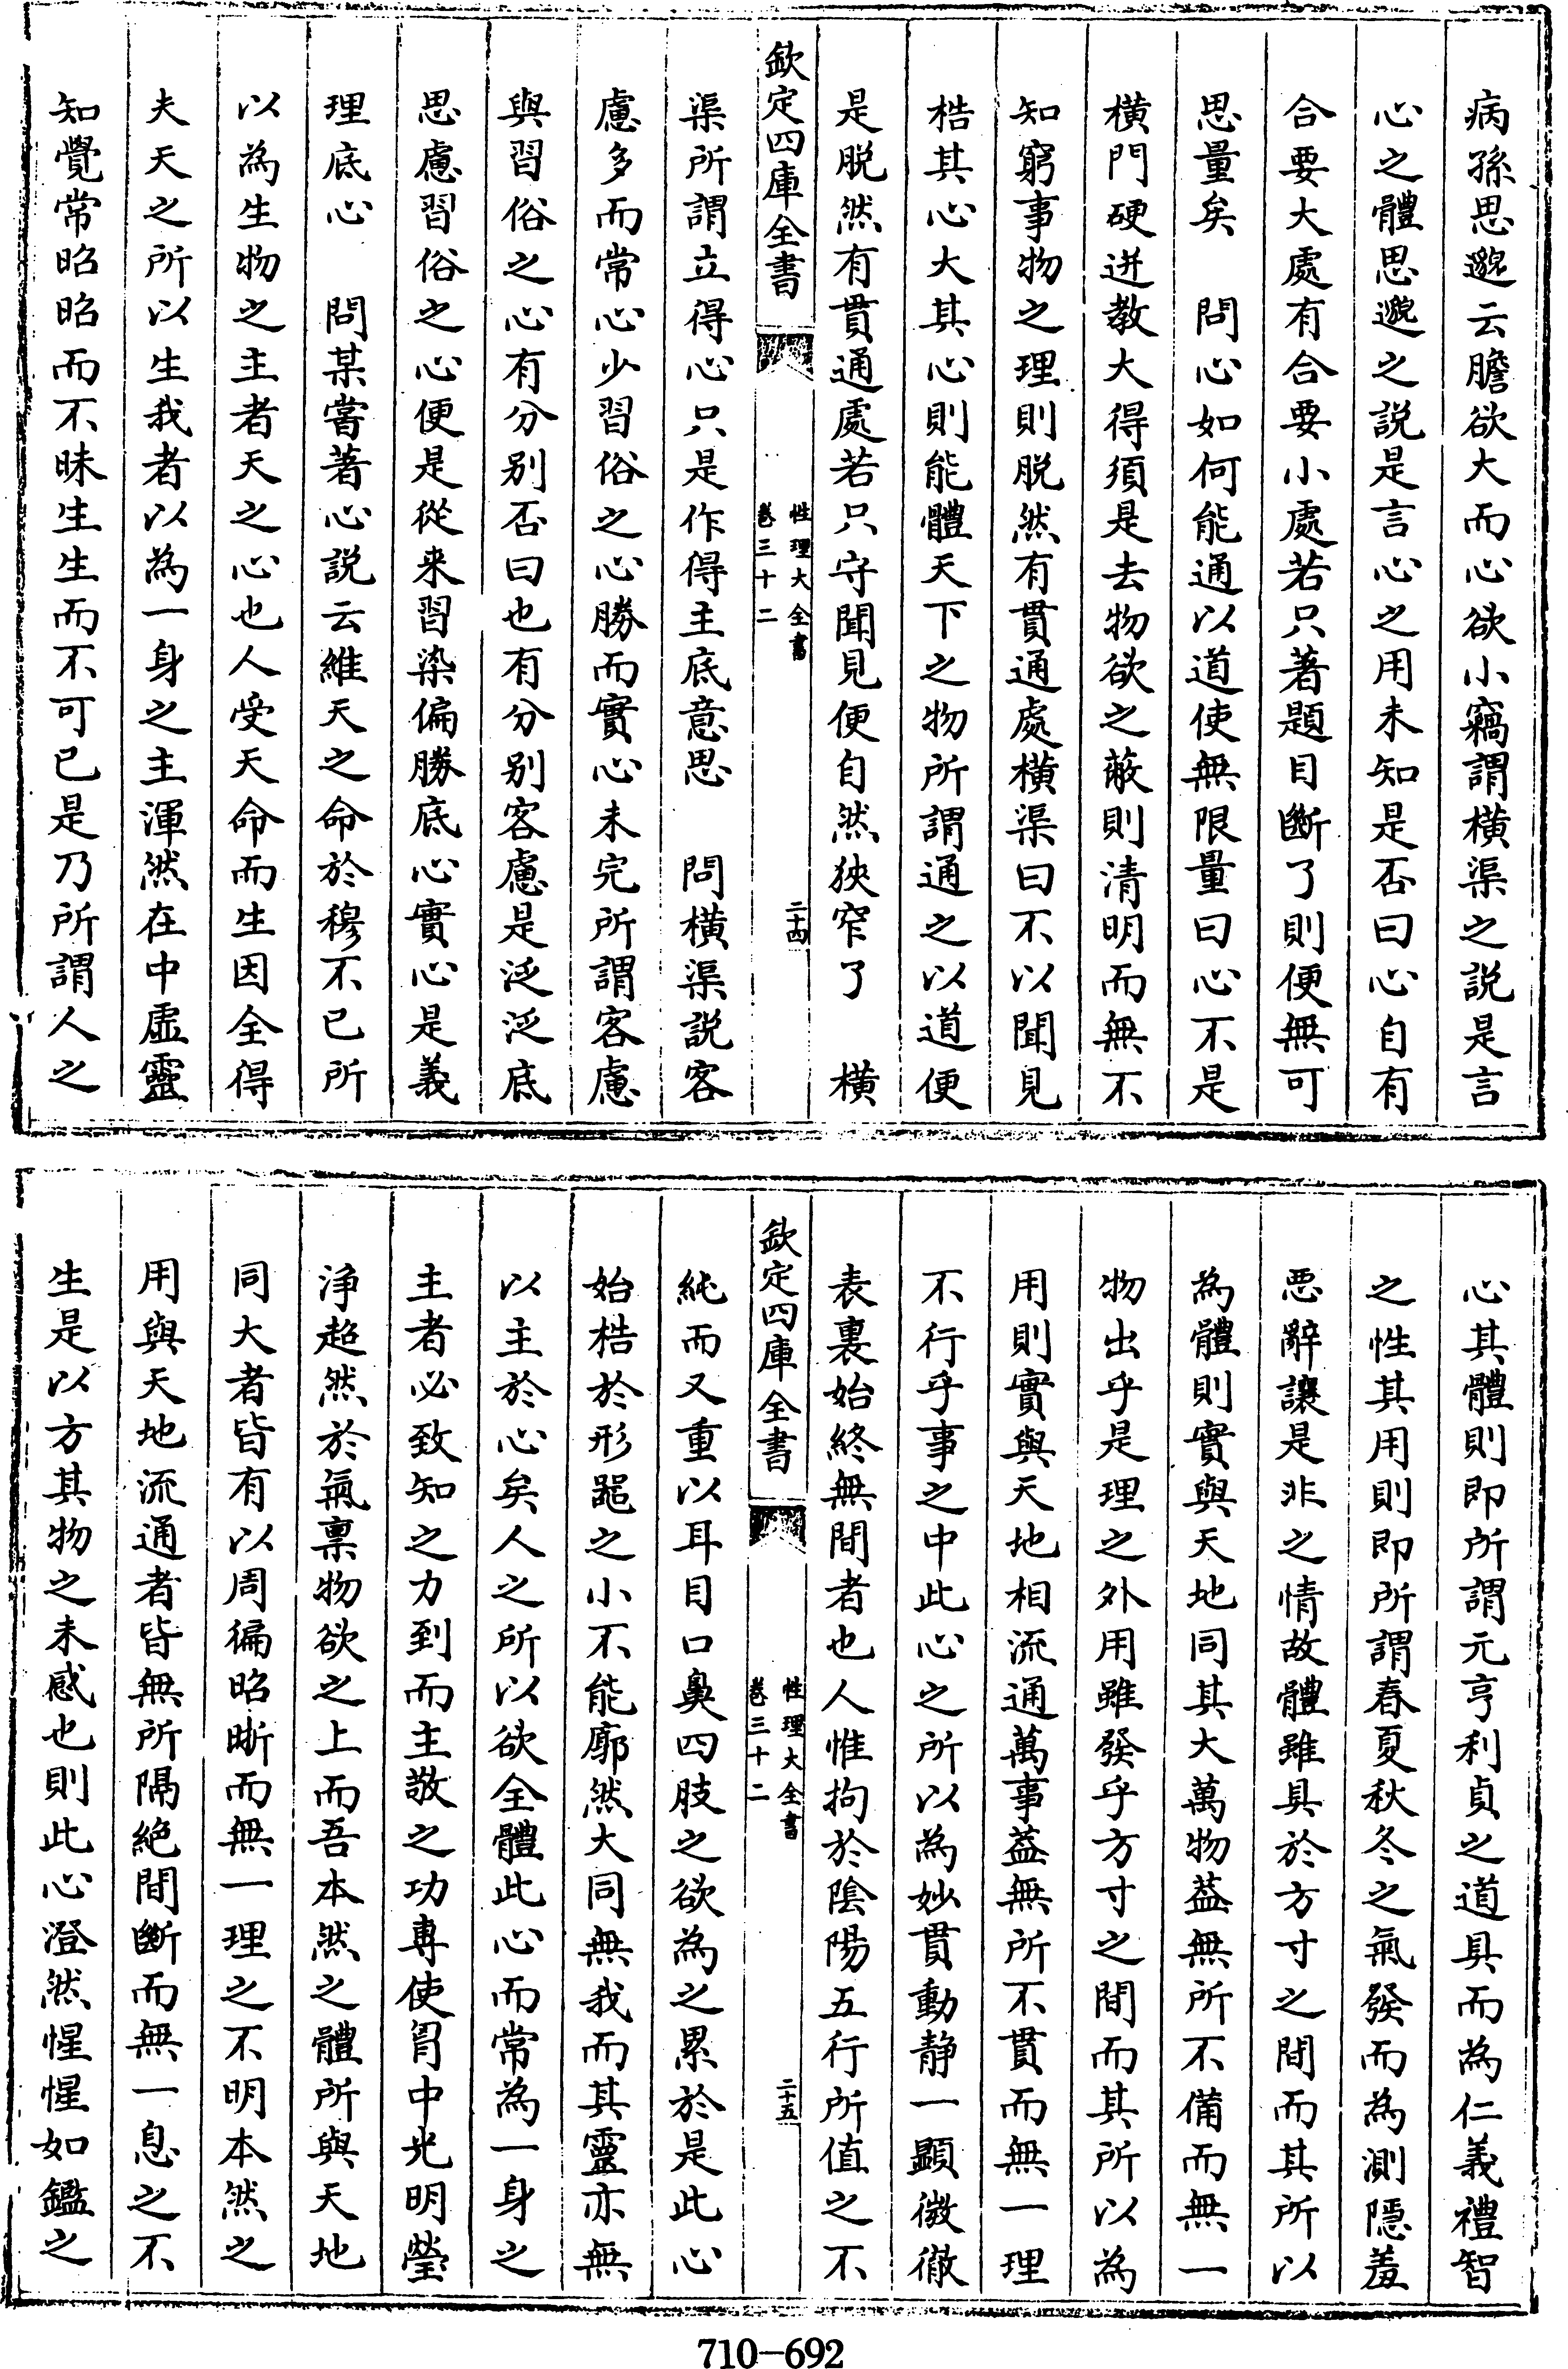 病孫思邈云膽欲大而心欲小竊謂橫渠之説是言
心之體思邈之説是言心之用未知是否曰心自有
合要大處有合要小處若只著題目斷了則便無可
思量矣　問心如何能通以道使無限量曰心不是
橫門硬迸教大得須是去物欲之蔽則清明而無不
知窮事物之理則脱然有貫通處橫渠曰不以聞見
梏其心大其心則能體天下之物所謂通之以道便
是脱然有貫通處若只守聞見便自然狹窄了　橫
欽定四庫全書
性理大全書
卷三十二
二十四
渠所謂立得心只是作得主底意思　問橫渠説客
慮多而常心少習俗之心勝而實心未完所謂客慮
與習俗之心有分别否曰也有分别客慮是泛泛底
思慮習俗之心便是從来習染偏勝底心實心是義
理底心　問某嘗著心説云維天之命於穆不已所
以為生物之主者天之心也人受天命而生因全得
夫天之所以生我者以為一身之主渾然在中虛靈
知覺常昭昭而不昧生生而不可已是乃所謂人之
心其體則即所謂元亨利貞之道具而為仁義禮智
之性其用則即所謂春夏秋冬之氣發而為測隱羞
惡辭讓是非之情故體雖具於方寸之間而其所以
為體則實與天地同其大萬物葢無所不備而無一
物出乎是理之外用雖發乎方寸之間而其所以為
用則實與天地相流通萬事葢無所不貫而無一理
不行乎事之中此心之所以為妙貫動静一顯微徹
表裏始終無間者也人惟拘於陰陽五行所值之不
欽定四庫全書
性理大全書
卷三十二
二十五
純而又重以耳目口鼻四肢之欲為之累於是此心
始梏於形噐之小不能廓然大同無我而其靈亦無
以主於心矣人之所以欲全體此心而常為一身之
主者必致知之力到而主敬之功專使胷中光明瑩
浄超然於氣禀物欲之上而吾本然之體所與天地
同大者皆有以周徧昭晰而無一理之不明本然之
用與天地流通者皆無所隔絶間斷而無一息之不
生是以方其物之未感也則此心澄然惺惺如鑑之
710-692